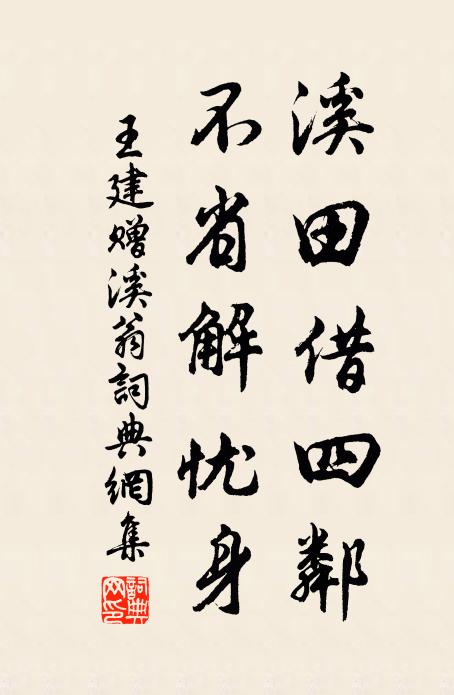 溪田借四鄰
不省解忧身
王建贈溪翁詞典網集
詞典
网印